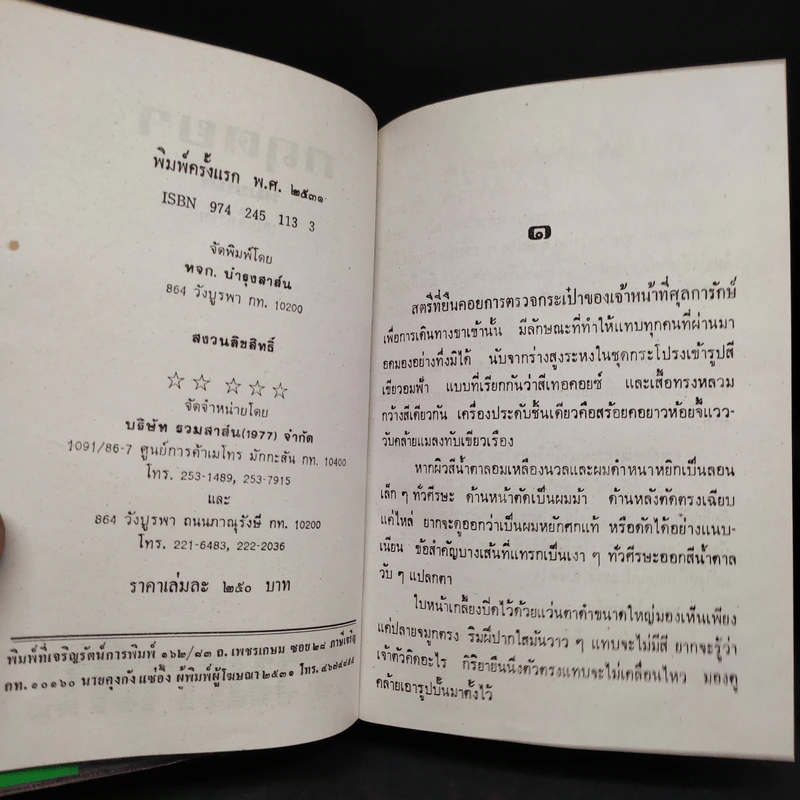 พิมพ์ครั้งแรก พ.ศ. ๒๕๓๑
ISBN 974 245 113 3
จัดพิมพ์โดย
หจก. บำรุงสาส์น
864 วังบูรพา กท. 10200
สงวนลิขสิทธิ์
☆ ☆ ☆ ☆ ☆
จัดจำหน่ายโดย
บริษัท รวมสาส์น(1977) จำกัด
1091/86-7 ศูนย์การค้าเมโทร มักกะสัน กท. 10400
โทร. 253-1489, 253-7915
และ
864 วังบูรพา ถนนภาณุรังษี กท. 10200
โทร. 221-6483, 222-2036
ราคาเล่มละ ๒๕๐ บาท
พิมพ์ที่เจริญรัตน์การพิมพ์ ๑๖๒/๘๓ ถ. เพชรเกษม ซอย ๒๘ ภาษีเจริญ
กท. ๑๐๑๖๐ นายคุงกัง แซ่อึ้ง ผู้พิมพ์ผู้โฆษณา ๒๕๓๑ โทร.
๑
สตรีที่ยืนคอยการตรวจกระเป๋าของเจ้าหน้าที่ศุลการักษ์
เพื่อการเดินทางขาเข้านั้น มีลักษณะที่ทำให้แทบทุกคนที่ผ่านมา
อดมองอย่างทึ่งมิได้ นับจากร่างสูงระหงในชุดกระโปรงเข้ารูปสี
เขียวอมฟ้า แบบที่เรียกกันว่าสีเทอคอยซ์ และเสื้อทรงหลวม
กว้างสีเดียวกัน เครื่องประดับชิ้นเดียวคือสร้อยคอยาวห้อยจี้แวว-
วับคล้ายแมลงทับเขียวเรือง
หากผิวสีน้ำตาลอมเหลืองนวลและผมดำหนาหยิกเป็นลอน
เล็ก ๆ ทั่วศีรษะ ด้านหน้าตัดเป็นผมม้า ด้านหลังตัดตรงเฉียบ
แค่ไหล่ ยากจะดูออกว่าเป็นผมหยักศกแท้ หรือดัดได้อย่างแนบ-
เนียน ข้อสำคัญบางเส้นที่แทรกเป็นเงา ๆ ทั่วศีรษะออกสีน้ำตาล
วับ ๆ แปลกตา
ใบหน้าเกลี้ยงปิดไว้ด้วยแว่นตาดำขนาดใหญ่มองเห็นเพียง
แค่ปลายจมูกตรง ริมฝีปากใสมันวาว ๆ แทบจะไม่มีสี ยากจะรู้ว่า
เจ้าตัวคิดอะไร กิริยายืนนิ่งตัวตรงแทบจะไม่เคลื่อนไหว มองดู
คล้ายเอารูปปั้นมาตั้งไว้